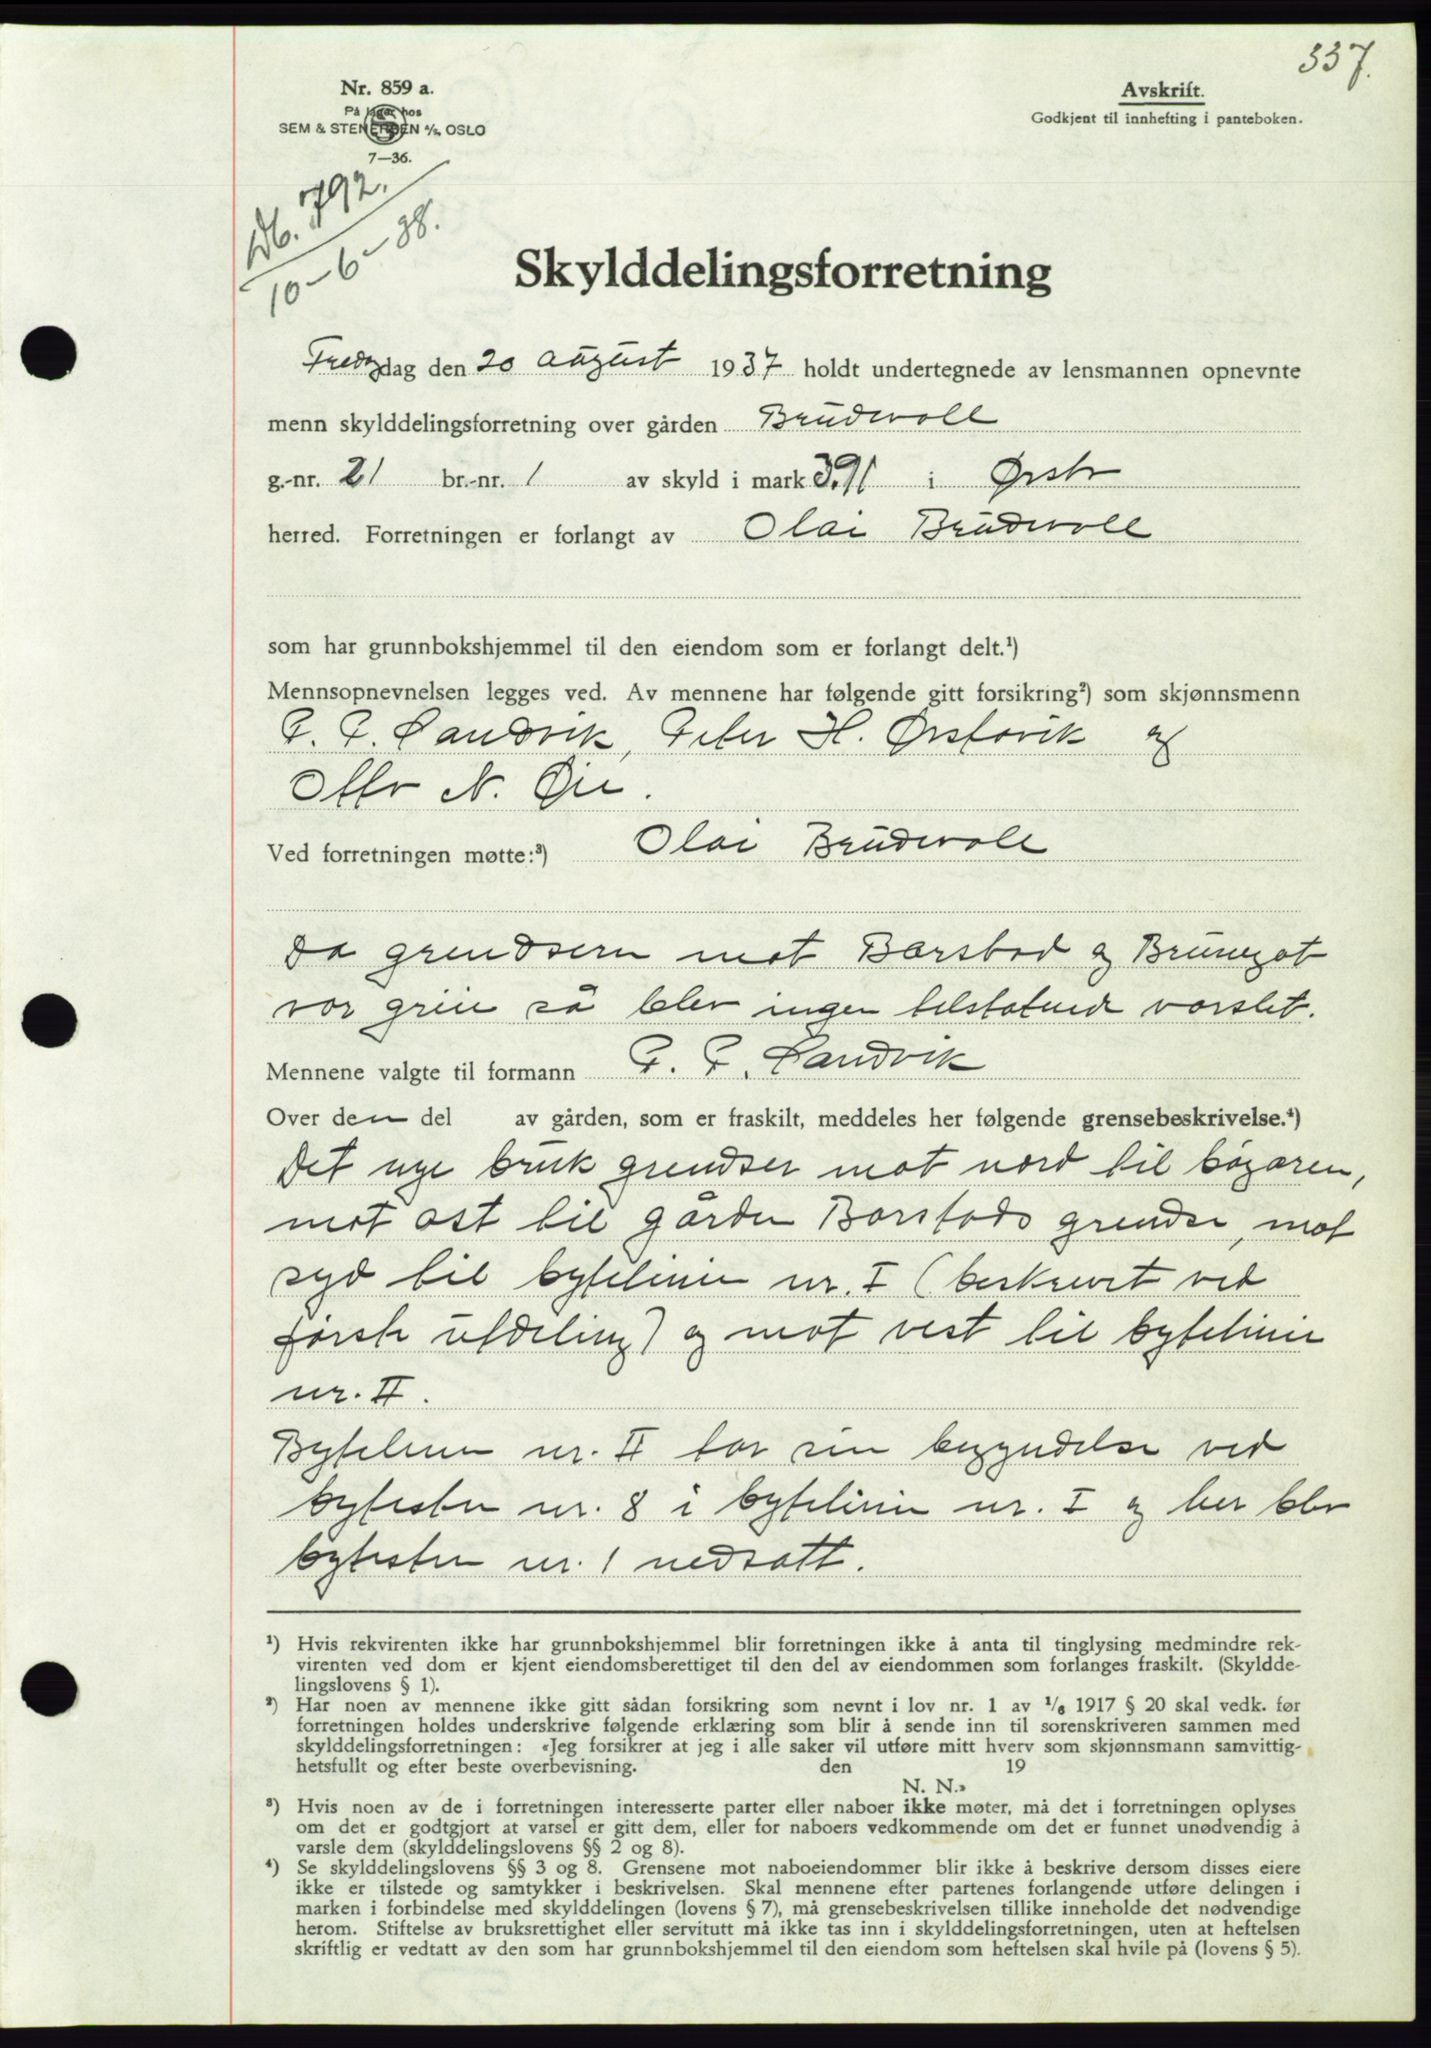 337.
Nr. 859 a.
På lager hos
SEM & STENERSEN A/S, OSLO
7—36.
Avskrift.
Godkjent til innhefting i panteboken.
Db. 792.
10-6-38.
Skylddelingsforretning
Fredag den 20 august 1937 holdt undertegnede av lensmannen opnevnte
menn skylddelingsforretning over gården Brudevoll
g.-nr. 21 br.-nr. 1 av skyld i mark 3,91 i Ørsta
herred. Forretningen er forlangt av Olai Brudevoll
som har grunnbokshjemmel til den eiendom som er forlangt delt.¹)
Mennsopnevnelsen legges ved. Av mennene har følgende gitt forsikring²) som skjønnsmenn
P. P. Sandvik, Peter H. Ørstavik og
Otto N. Øie.
Ved forretningen møtte:³) Olai Brudevoll
Da grendsern mot Barstad og
var grei så blev ingen tilstøtende varslet.
Mennene valgte til formann P. P. Sandvik
Over den del av gården, som er fraskilt, meddeles her følgende grensebeskrivelse.⁴)
Det nye bruk grendser mot nord til bøgaren,
mot øst til gården Barstads grendse, mot
syd til bytelinie nr. I (beskrevet ved
første utdeling) og mot vest til bytelinie
nr. II.
Bytelinie nr. II tar sin begyndelse ved
bytesten nr. 8 i bytelinie nr. I og her blev
bytesten nr. 1 nedsatt.
¹) Hvis rekvirenten ikke har grunnbokshjemmel blir forretningen ikke å anta til tinglysing medmindre rek-
virenten ved dom er kjent eiendomsberettiget til den del av eiendommen som forlanges fraskilt. (Skyldde-
lingslovens § 1).
²) Har noen av mennene ikke gitt sådan forsikring som nevnt i lov nr. 1 av ¹/₆ 1917 § 20 skal vedk. før
forretningen holdes underskrive følgende erklæring som blir å sende inn til sorenskriveren sammen med
skylddelingsforretningen: «Jeg forsikrer at jeg i alle saker vil utføre mitt hverv som skjønnsmann samvittig-
hetsfullt og efter beste overbevisning. den 19
N. N.»
³) Hvis noen av de i forretningen interesserte parter eller naboer ikke møter, må det i forretningen oplyses
om det er godtgjort at varsel er gitt dem, eller for naboers vedkommende om det er funnet unødvendig å
varsle dem (skylddelingslovens §§ 2 og 8).
⁴) Se skylddelingslovens §§ 3 og 8. Grensene mot naboeiendommer blir ikke å beskrive dersom disses eiere
ikke er tilstede og samtykker i beskrivelsen. Skal mennene efter partenes forlangende utføre delingen i
marken i forbindelse med skylddelingen (lovens § 7), må grensebeskrivelsen tillike inneholde det nødvendige
herom. Stiftelse av bruksrettighet eller servitutt må ikke tas inn i skylddelingsforretningen, uten at heftelsen
skriftlig er vedtatt av den som har grunnbokshjemmel til den eiendom som heftelsen skal hvile på (lovens § 5).